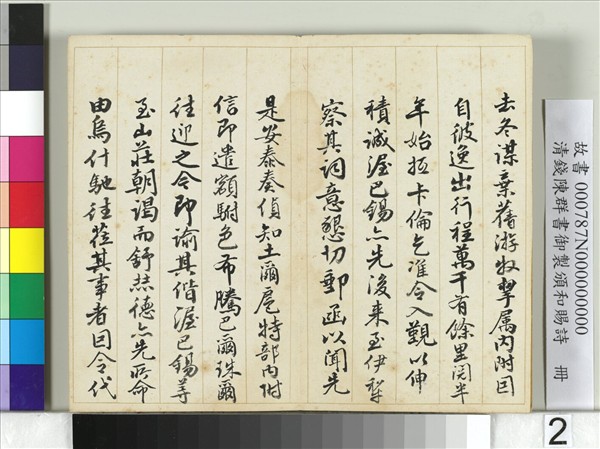 去冬謀棄舊游牧挈属內附因
自彼逸出行程萬千有餘里閱半
年始抵卡倫乞准令入覲以伸
積誠渥巴錫亦先後来至伊犂
察其詞意懇切郵函以聞先
是安泰奏偵知土爾扈特部內附
信即遣額駙色布騰巴爾珠爾
往迎之令即諭其偕渥巴錫等
至山莊朝謁而舒赫德亦先所命
由烏什馳往莅其事者因令代
故書 000787N000000000
清錢陳群書御製頒和賜詩 冊
2